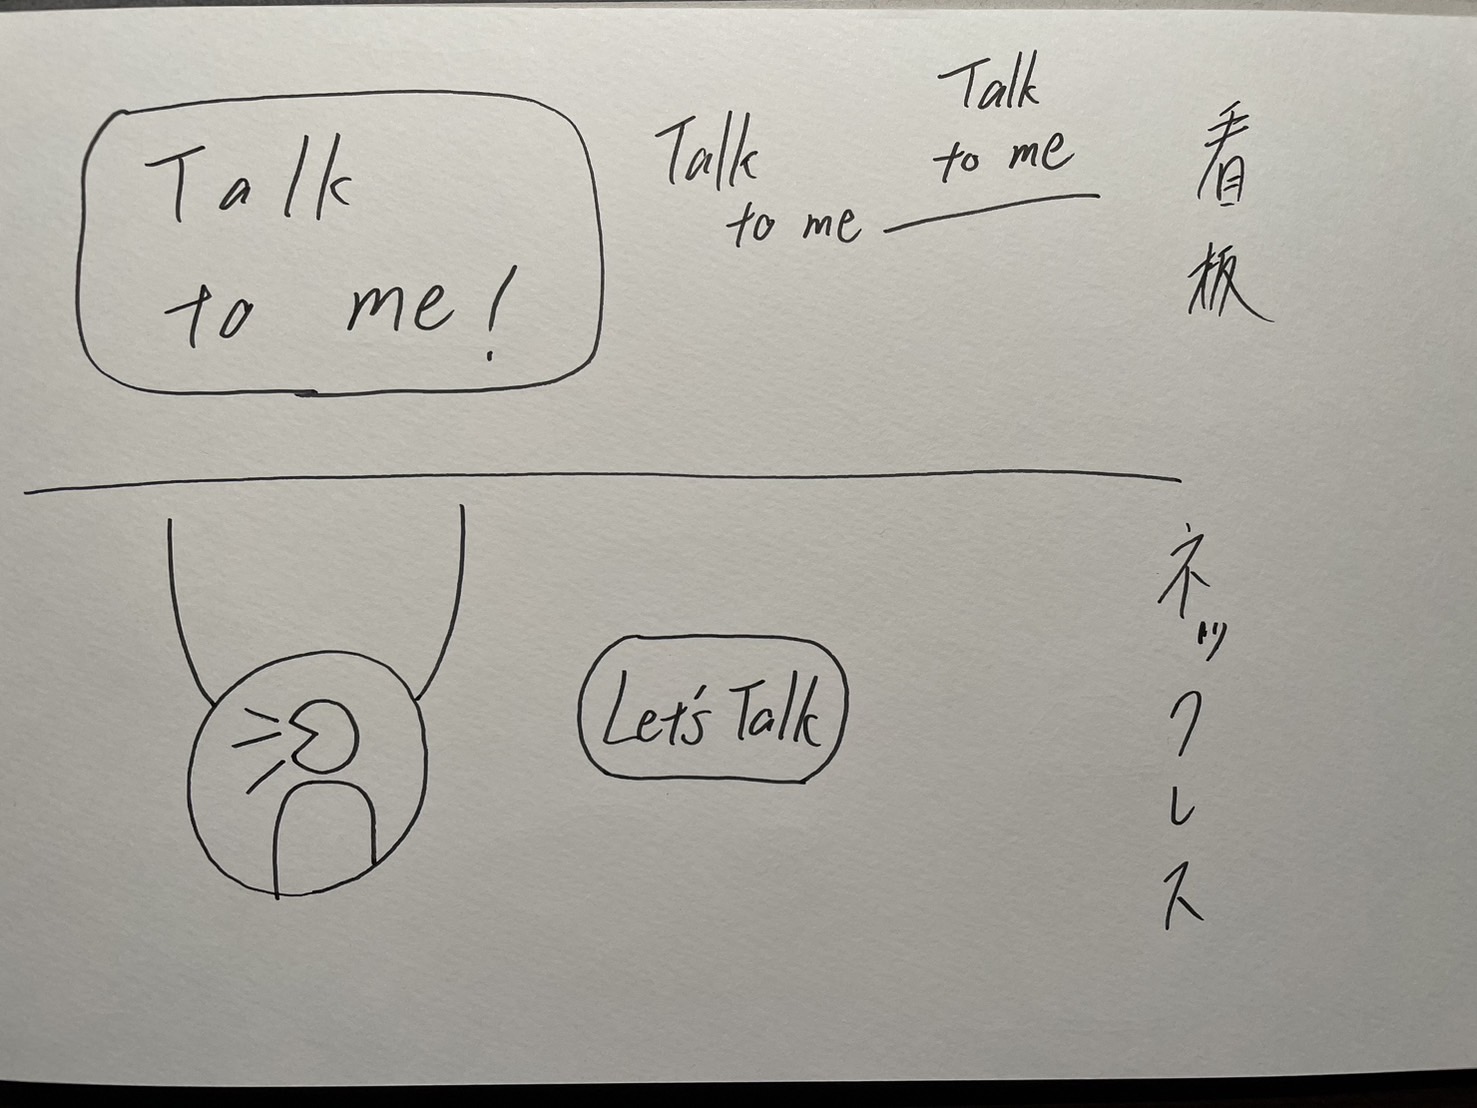 Talk
to me!
Talk
to me
Talk
to me
看板
Let's Talk
ネックレス